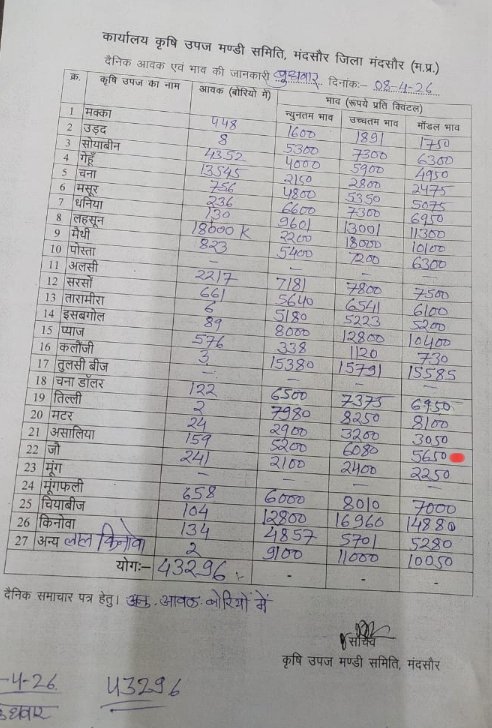 कार्यालय कृषि उपज मण्डी समिति, मंदसौर जिला मंदसौर (म.प्र.)
दैनिक आवक एवं भाव की जानकारी बुधवार दिनांक:- 08-4-26
क्र. कृषि उपज का नाम आवक (बोरियो में) भाव (रूपये प्रति क्विंटल)
न्युनतम भाव उच्चतम भाव मॉडल भाव
1 मक्का 448 1600 1891 1750
2 उड़द 8 5300 7300 6300
3 सोयाबीन 4352 4000 5900 4950
4 गेहूँ 13545 2150 2800 2475
5 चना 756 4800 5350 5075
6 मसूर 236 6600 7300 6950
7 धनिया 130 9601 13001 11300
8 लहसून 18000 K 2200 18000 10100
9 मैथी 823 5400 7200 6300
10 पोस्ता - - - -
11 अलसी 2217 7181 7800 7500
12 सरसों 661 5640 6541 6100
13 तारामीरा 6 5180 5223 5200
14 इसबगोल 89 8000 12800 10400
15 प्याज 576 338 1120 730
16 कलौंजी 3 15380 15791 15585
17 तुलसी बीज - - - -
18 चना डॉलर 122 6500 7375 6950
19 तिल्ली 2 7980 8250 8100
20 मटर 24 2900 3200 3050
21 असालिया 159 5200 6080 5650
22 जौ 241 2100 2400 2250
23 मूंग - - - -
24 मूंगफली 658 6000 8010 7000
25 चियाबीज 104 12800 16960 14880
26 किनोवा 134 4857 5701 5280
27 अन्य लाल किनोवा 2 9100 11000 10050
योगः- 43296 - - -
दैनिक समाचार पत्र हेतु। आवक बोरियों में
सचिव
कृषि उपज मण्डी समिति, मंदसौर
-4-26 43296